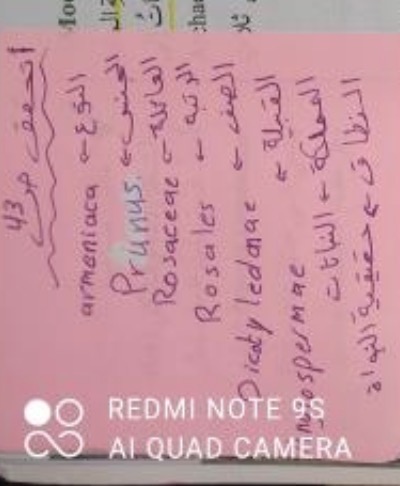 أتحقق ص 43
armeniaca ← النوع
Prunus ← الجنس
Rosaceae ← العائلة
Rosales ← الرتبة
Dicotyledonae ← الصف
ngiospermae ← القبيلة
المملكة ← النباتات
النطاق ← حقيقية النواة
REDMI NOTE 9S
AI QUAD CAMERA